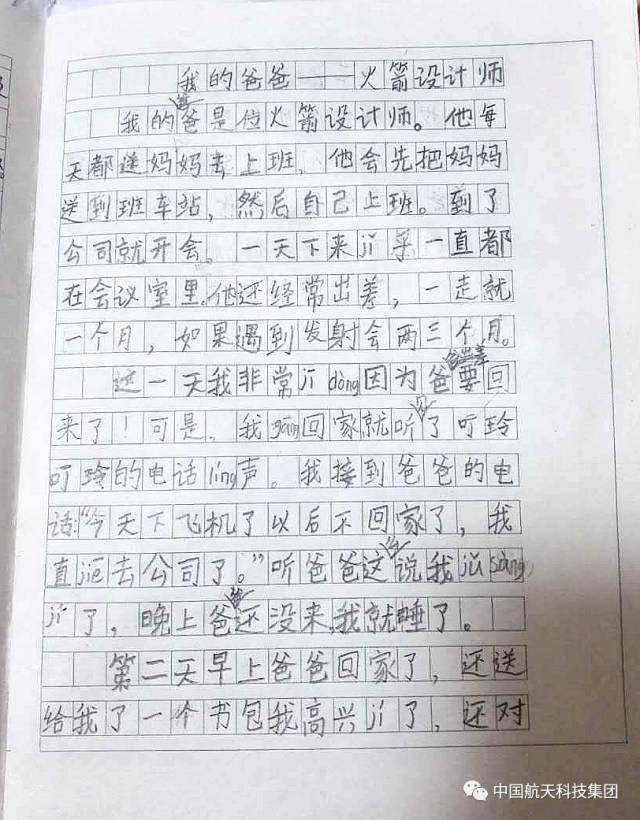 我的爸爸——火箭设计师
我的爸爸是位火箭设计师。他每
天都送妈妈去上班，他会先把妈妈
送到班车站，然后自己上班。到了
公司就开会。一天下来jǐ乎一直都
在会议室里。他还经常出差，一走就
一个月，如果遇到发射会两三个月。
这一天我非常jī dòng因为爸爸出差要回
来了！可是，我gāng回家就听见了叮玲
叮玲的电话líng声。我接到爸爸的电
话："今天下飞机了以后不回家了，我
直jiē去公司了。"听爸爸这么说我jǔ sàng
jí了，晚上爸爸还没来，我就睡了。
第二天早上爸爸回家了，还送
给我了一个书包我高兴jí了，还对
中国航天科技集团